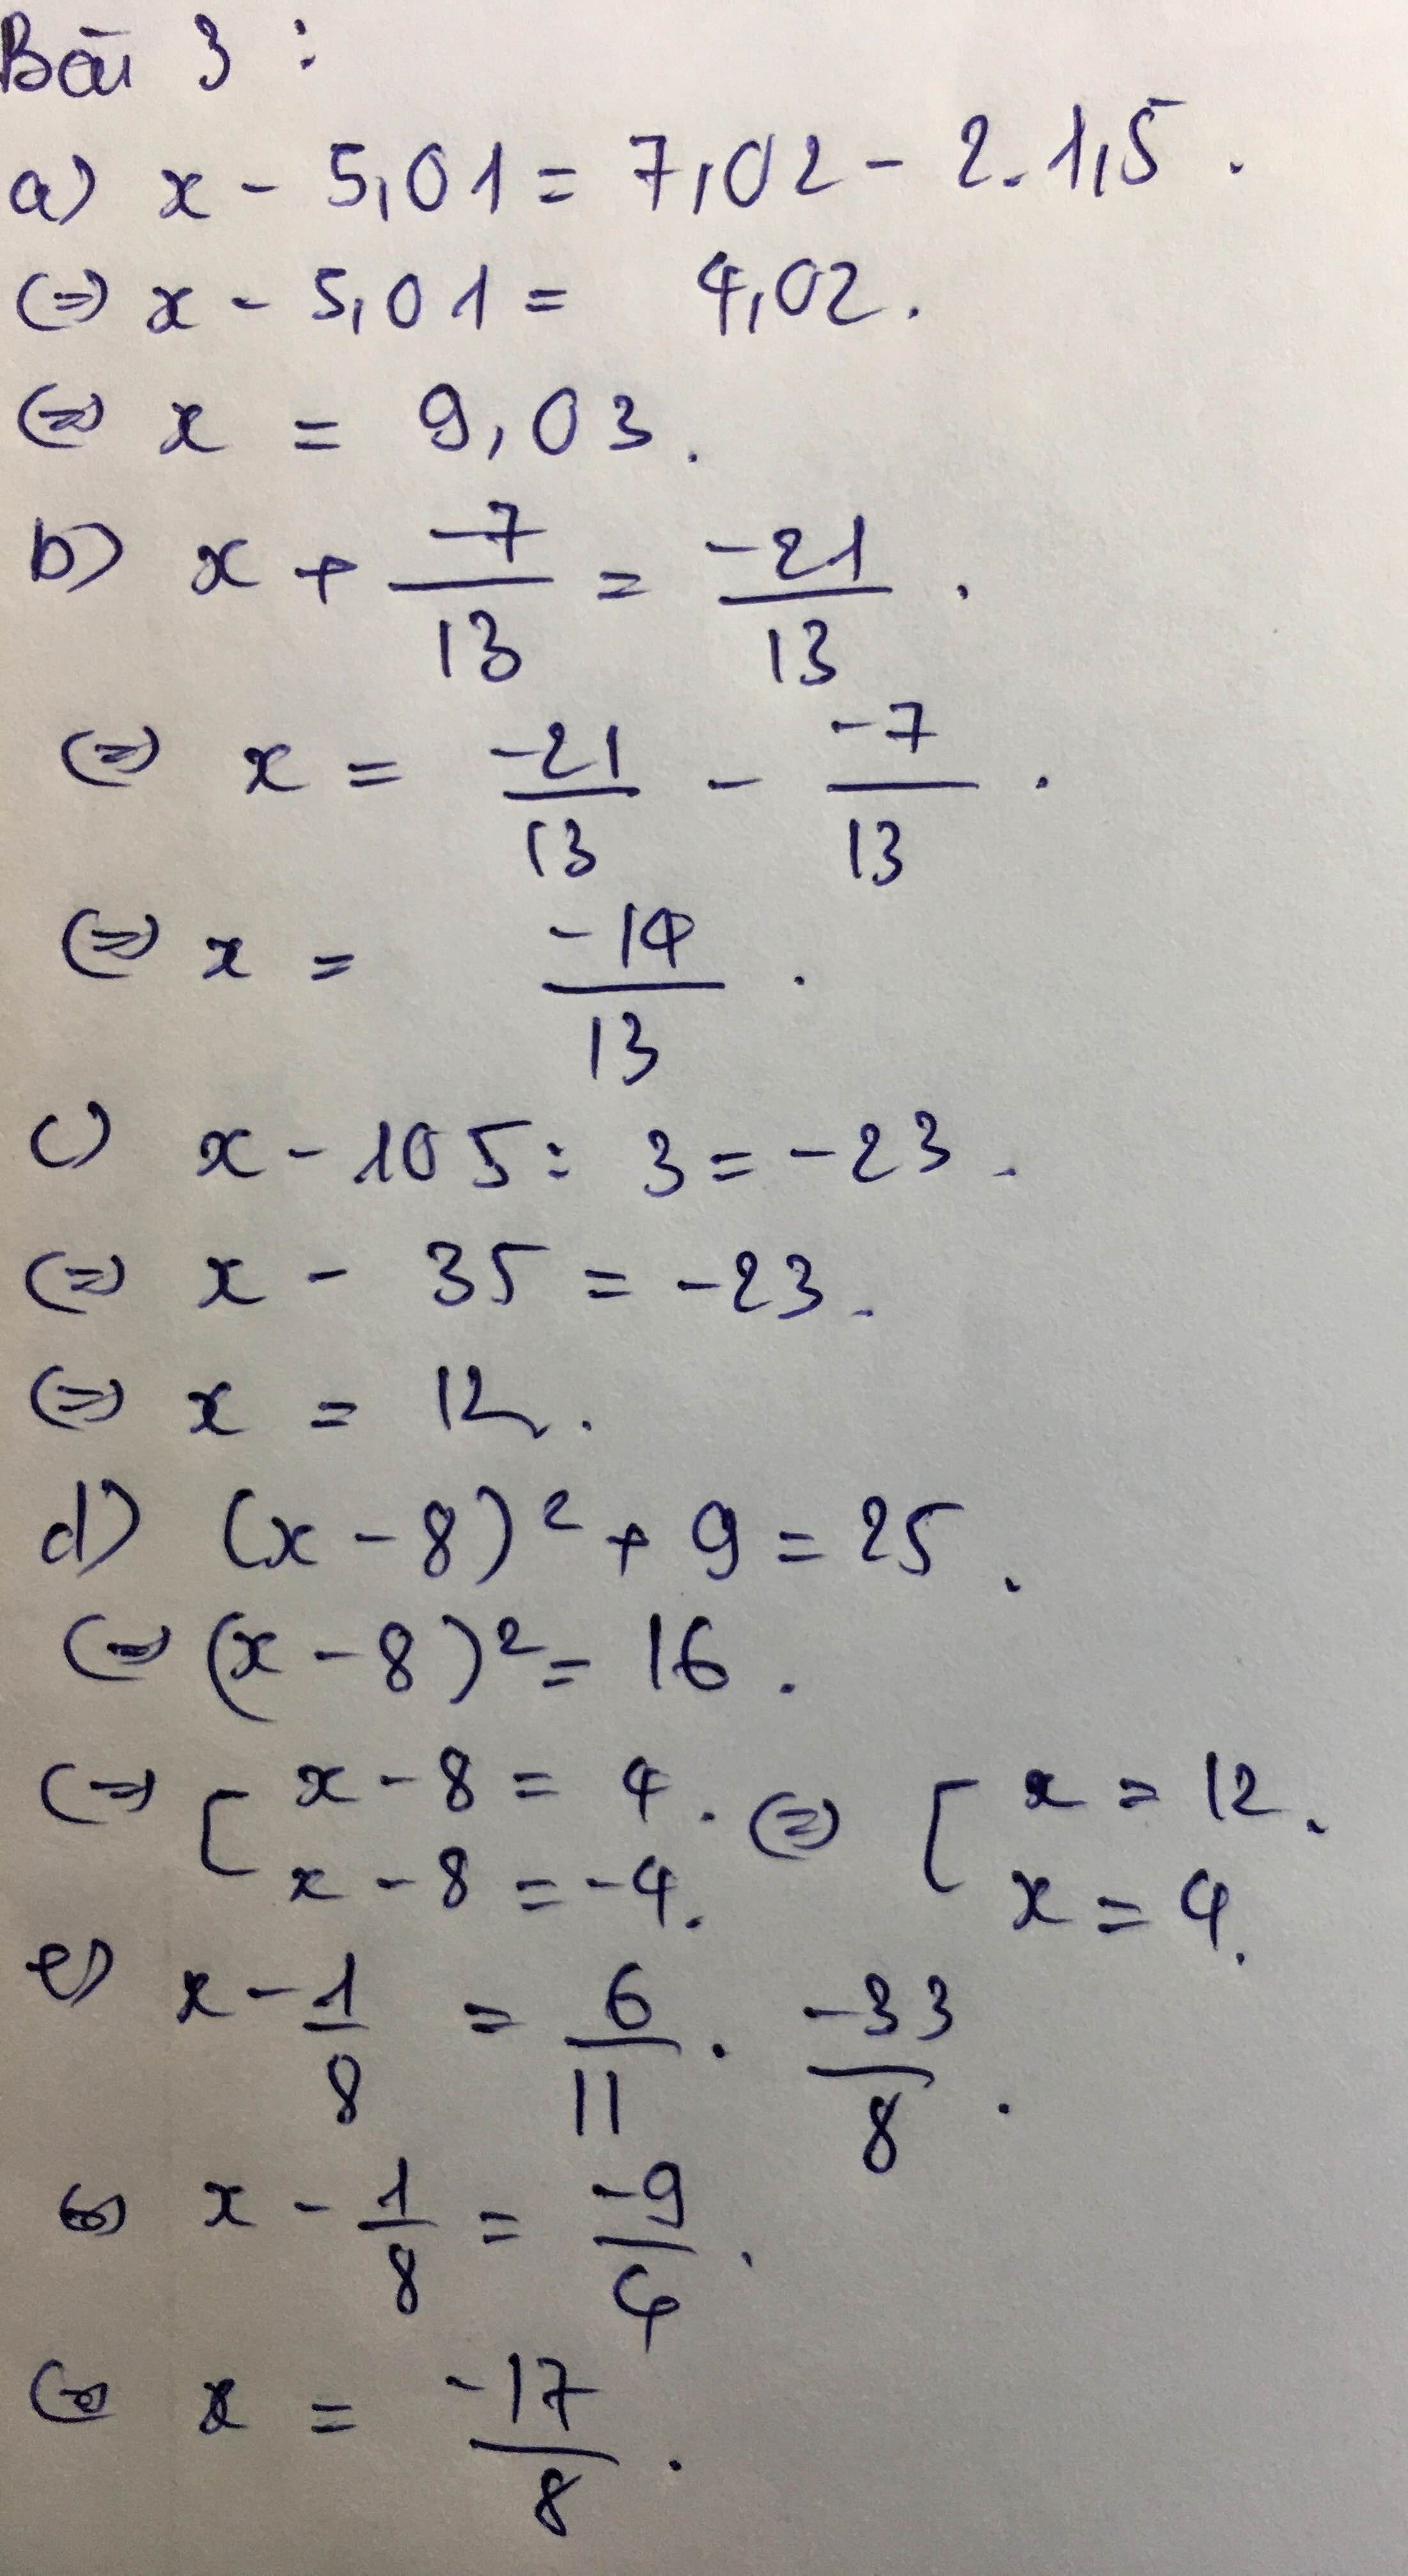 Bài 3 :
a) x - 5,01 = 7,02 - 2.1,5 .
(=) x - 5,01 = 4,02.
(=) x = 9,03.
b) x + -7/13 = -21/13 .
(=) x = -21/13 - -7/13 .
(=) x = -14/13 .
c) x - 105 : 3 = -23 .
(=) x - 35 = -23 .
(=) x = 12 .
d) (x - 8)² + 9 = 25 .
(=) (x - 8)² = 16 .
(=) [ x - 8 = 4 . (=) [ x = 12 .
x - 8 = -4. x = 4.
e) x - 1/8 = 6/11 . -33/8 .
(=) x - 1/8 = -9/4 .
(=) x = -17/8 .